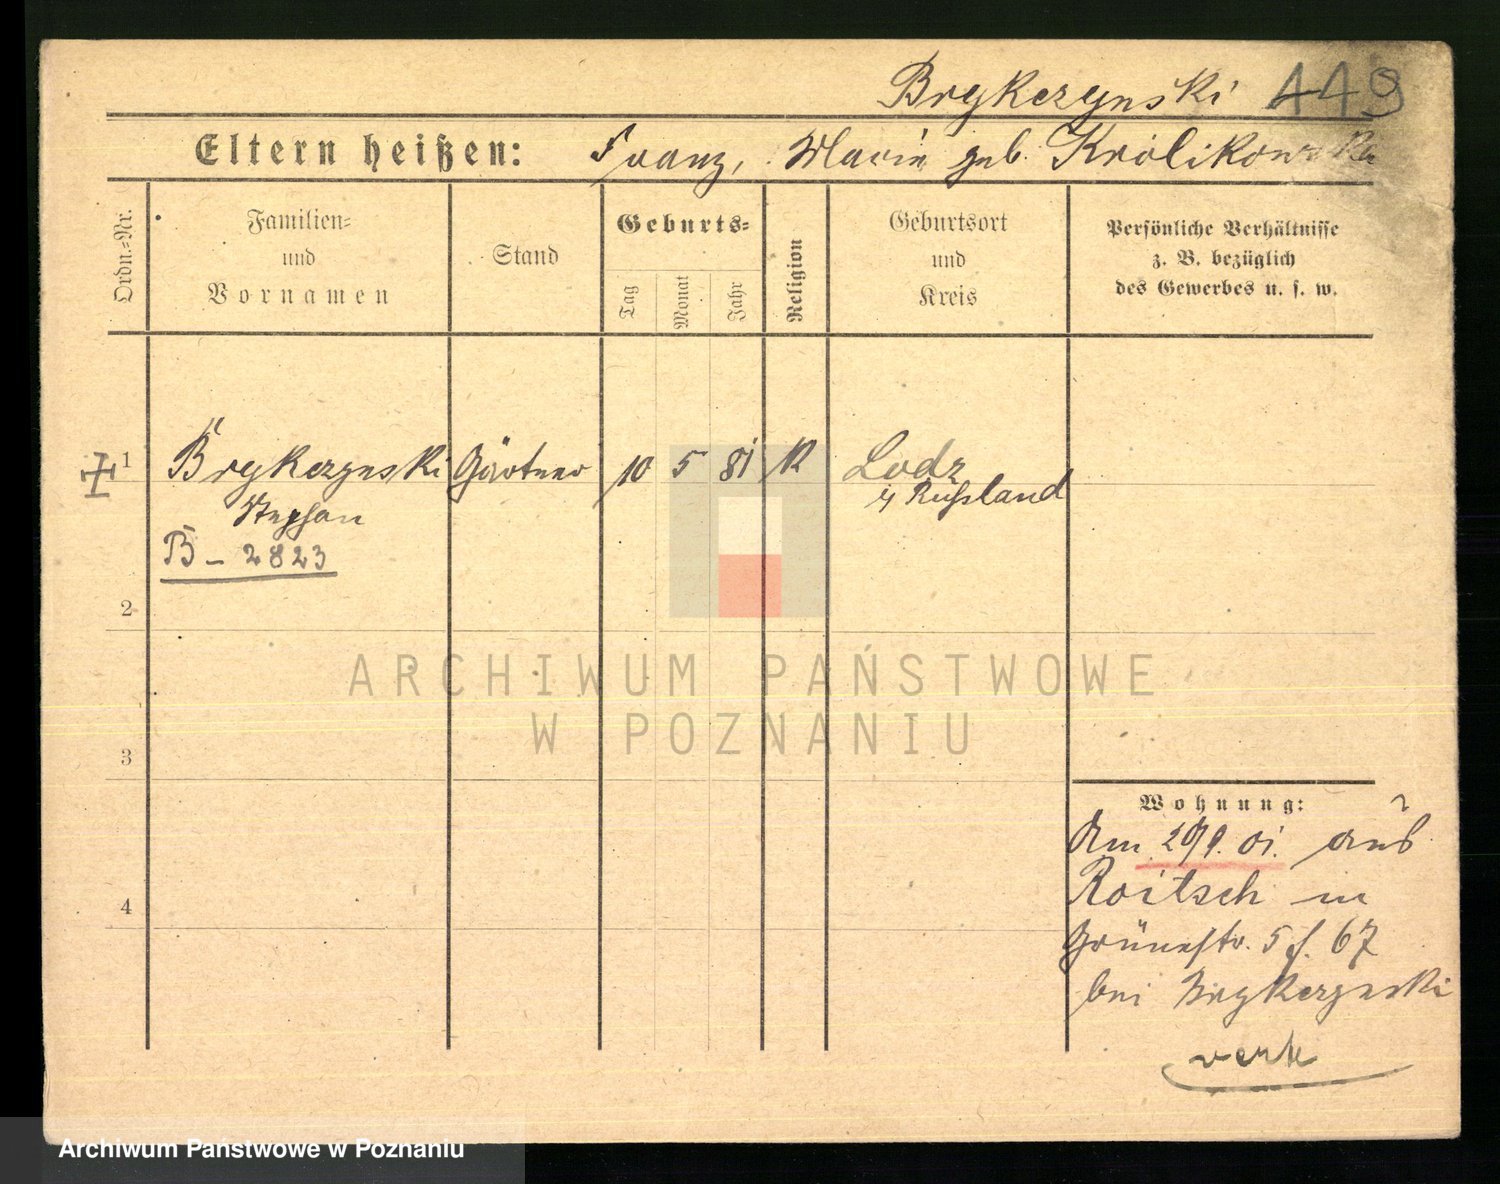 Brykczynski 449
Eltern heißen: Franz, Marie geb. Krolikowska
Ordn.=Nr.
Familien=
und
Vornamen
Stand
Geburts=
Tag
Monat
Jahr
Religion
Geburtsort
und
Kreis
Persönliche Verhältnisse
z. B. bezüglich
des Gewerbes u. s. w.
1 Brykczynski Gärtner 10 5 81 K Lodz
Stephan
i/ Rußland
B – 2823
2
3
4
ARCHIWUM PAŃSTWOWE
W POZNANIU
Wohnung:
Am 29/9. 01. aus
Roitsch in
Grünestr. 5 f. 67
bei Brykczynski
Archiwum Państwowe w Poznaniu